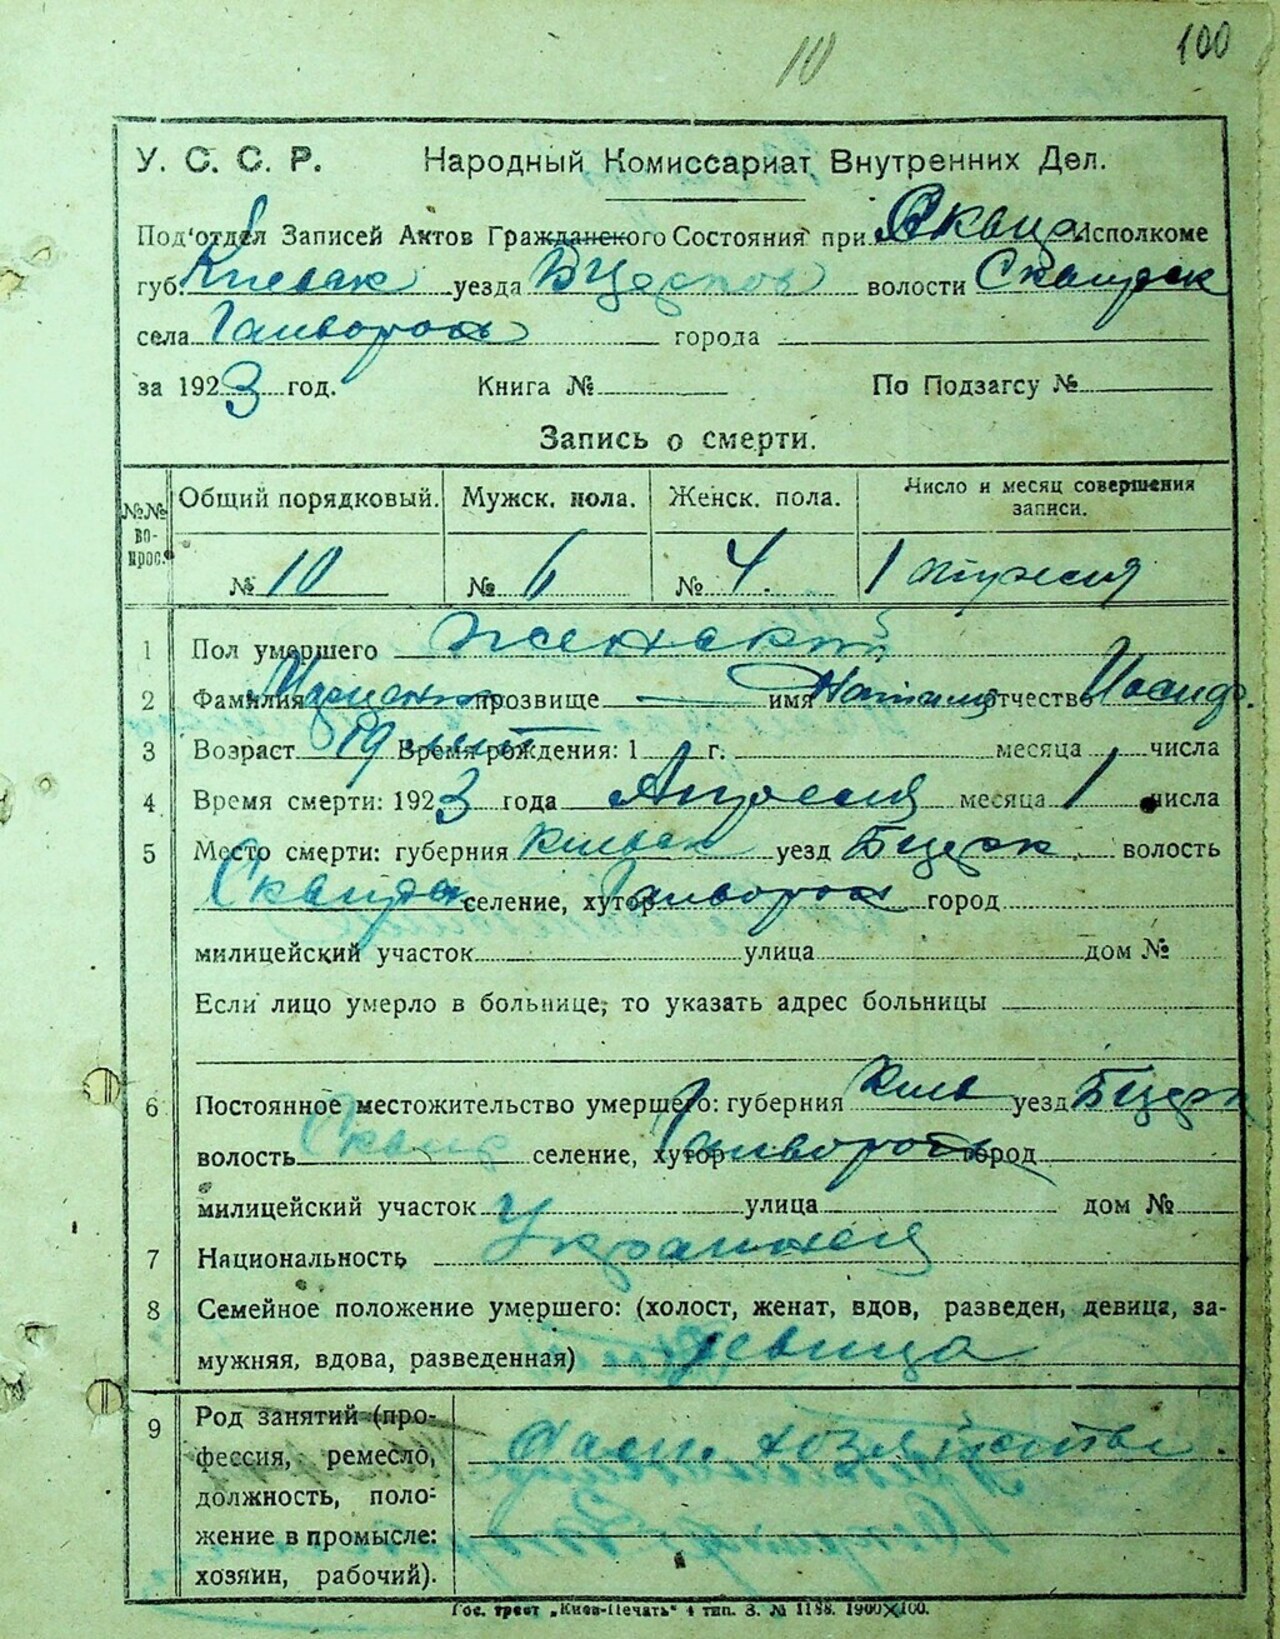 10 100
У. С. С. Р. Народный Комиссариат Внутренних Дел.
Под'отдел Записей Актов Гражданского Состояния при Сквир Исполкоме
губ. Киевск уезда Бцерков волости Сквирск
села Гайворон города
за 1923 год. Книга № По Подзагсу №
Запись о смерти.
№№ вопрос. Общий порядковый. Мужск. пола. Женск. пола. Число и месяц совершения
записи.
№ 10 № 6 № 4 1 апреля
1 Пол умершего женский
2 Фамилия прозвище — имя Наталия отчество Иосиф.
3 Возраст 19 лет Время рождения: 1 г. месяца числа
4 Время смерти: 1923 года Апреля месяца 1 числа
5 Место смерти: губерния Киевск уезд Бцерк. волость
Сквирск селение, хутор Гайворон город
милицейский участок улица дом №
Если лицо умерло в больнице, то указать адрес больницы
6 Постоянное местожительство умершего: губерния Киев уезд Бцерк
волость Сквир селение, хутор Гайворон город
милицейский участок улица дом №
7 Национальность
8 Семейное положение умершего: (холост, женат, вдов, разведен, девица, за-
мужняя, вдова, разведенная) девица
9 Род занятий (про-
фессия, ремесло, хозяйства.
должность, поло-
жение в промысле:
хозяин, рабочий).
Гос. трест „Киев-Печать“ 4 тип. З. № 1188. 1900×100.